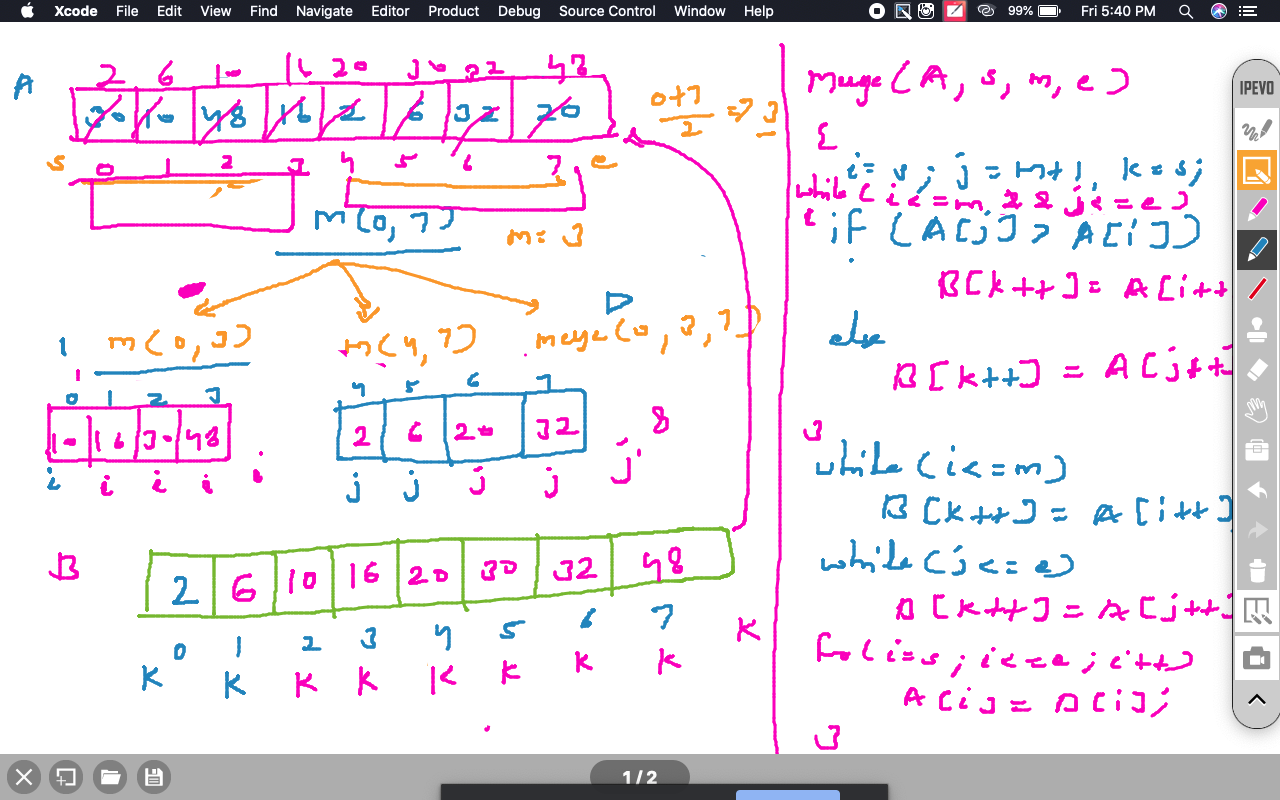 Xcode File Edit View Find Navigate Editor Product Debug Source Control Window Help 99% Fri 5:40 PM
IPEVO
A 2 6 10 16 20 30 32 48
30 10 48 16 2 6 32 20
0+7/2 => 3
s 0 1 2 3 4 5 6 7 e
m(0,7)
m=3
m(0,3) m(4,7) merge(0,3,7)
1
0 1 2 3 4 5 6 7
10 16 30 48 2 6 20 32 8
i i i i i j j j j j
B 2 6 10 16 20 30 32 48
0 1 2 3 4 5 6 7
K K K K K K K K K
merge(A, s, m, e)
{
i=s; j=m+1, k=s;
while(i<=m && j<=e)
{ if (A[j] > A[i])
B[k++] = A[i++
else
B[k++] = A[j++]
}
while(i<=m)
B[k++] = A[i++]
while(j<=e)
B[k++] = A[j++]
for(i=s; i<=e; i++)
A[i] = B[i];
}
1/2